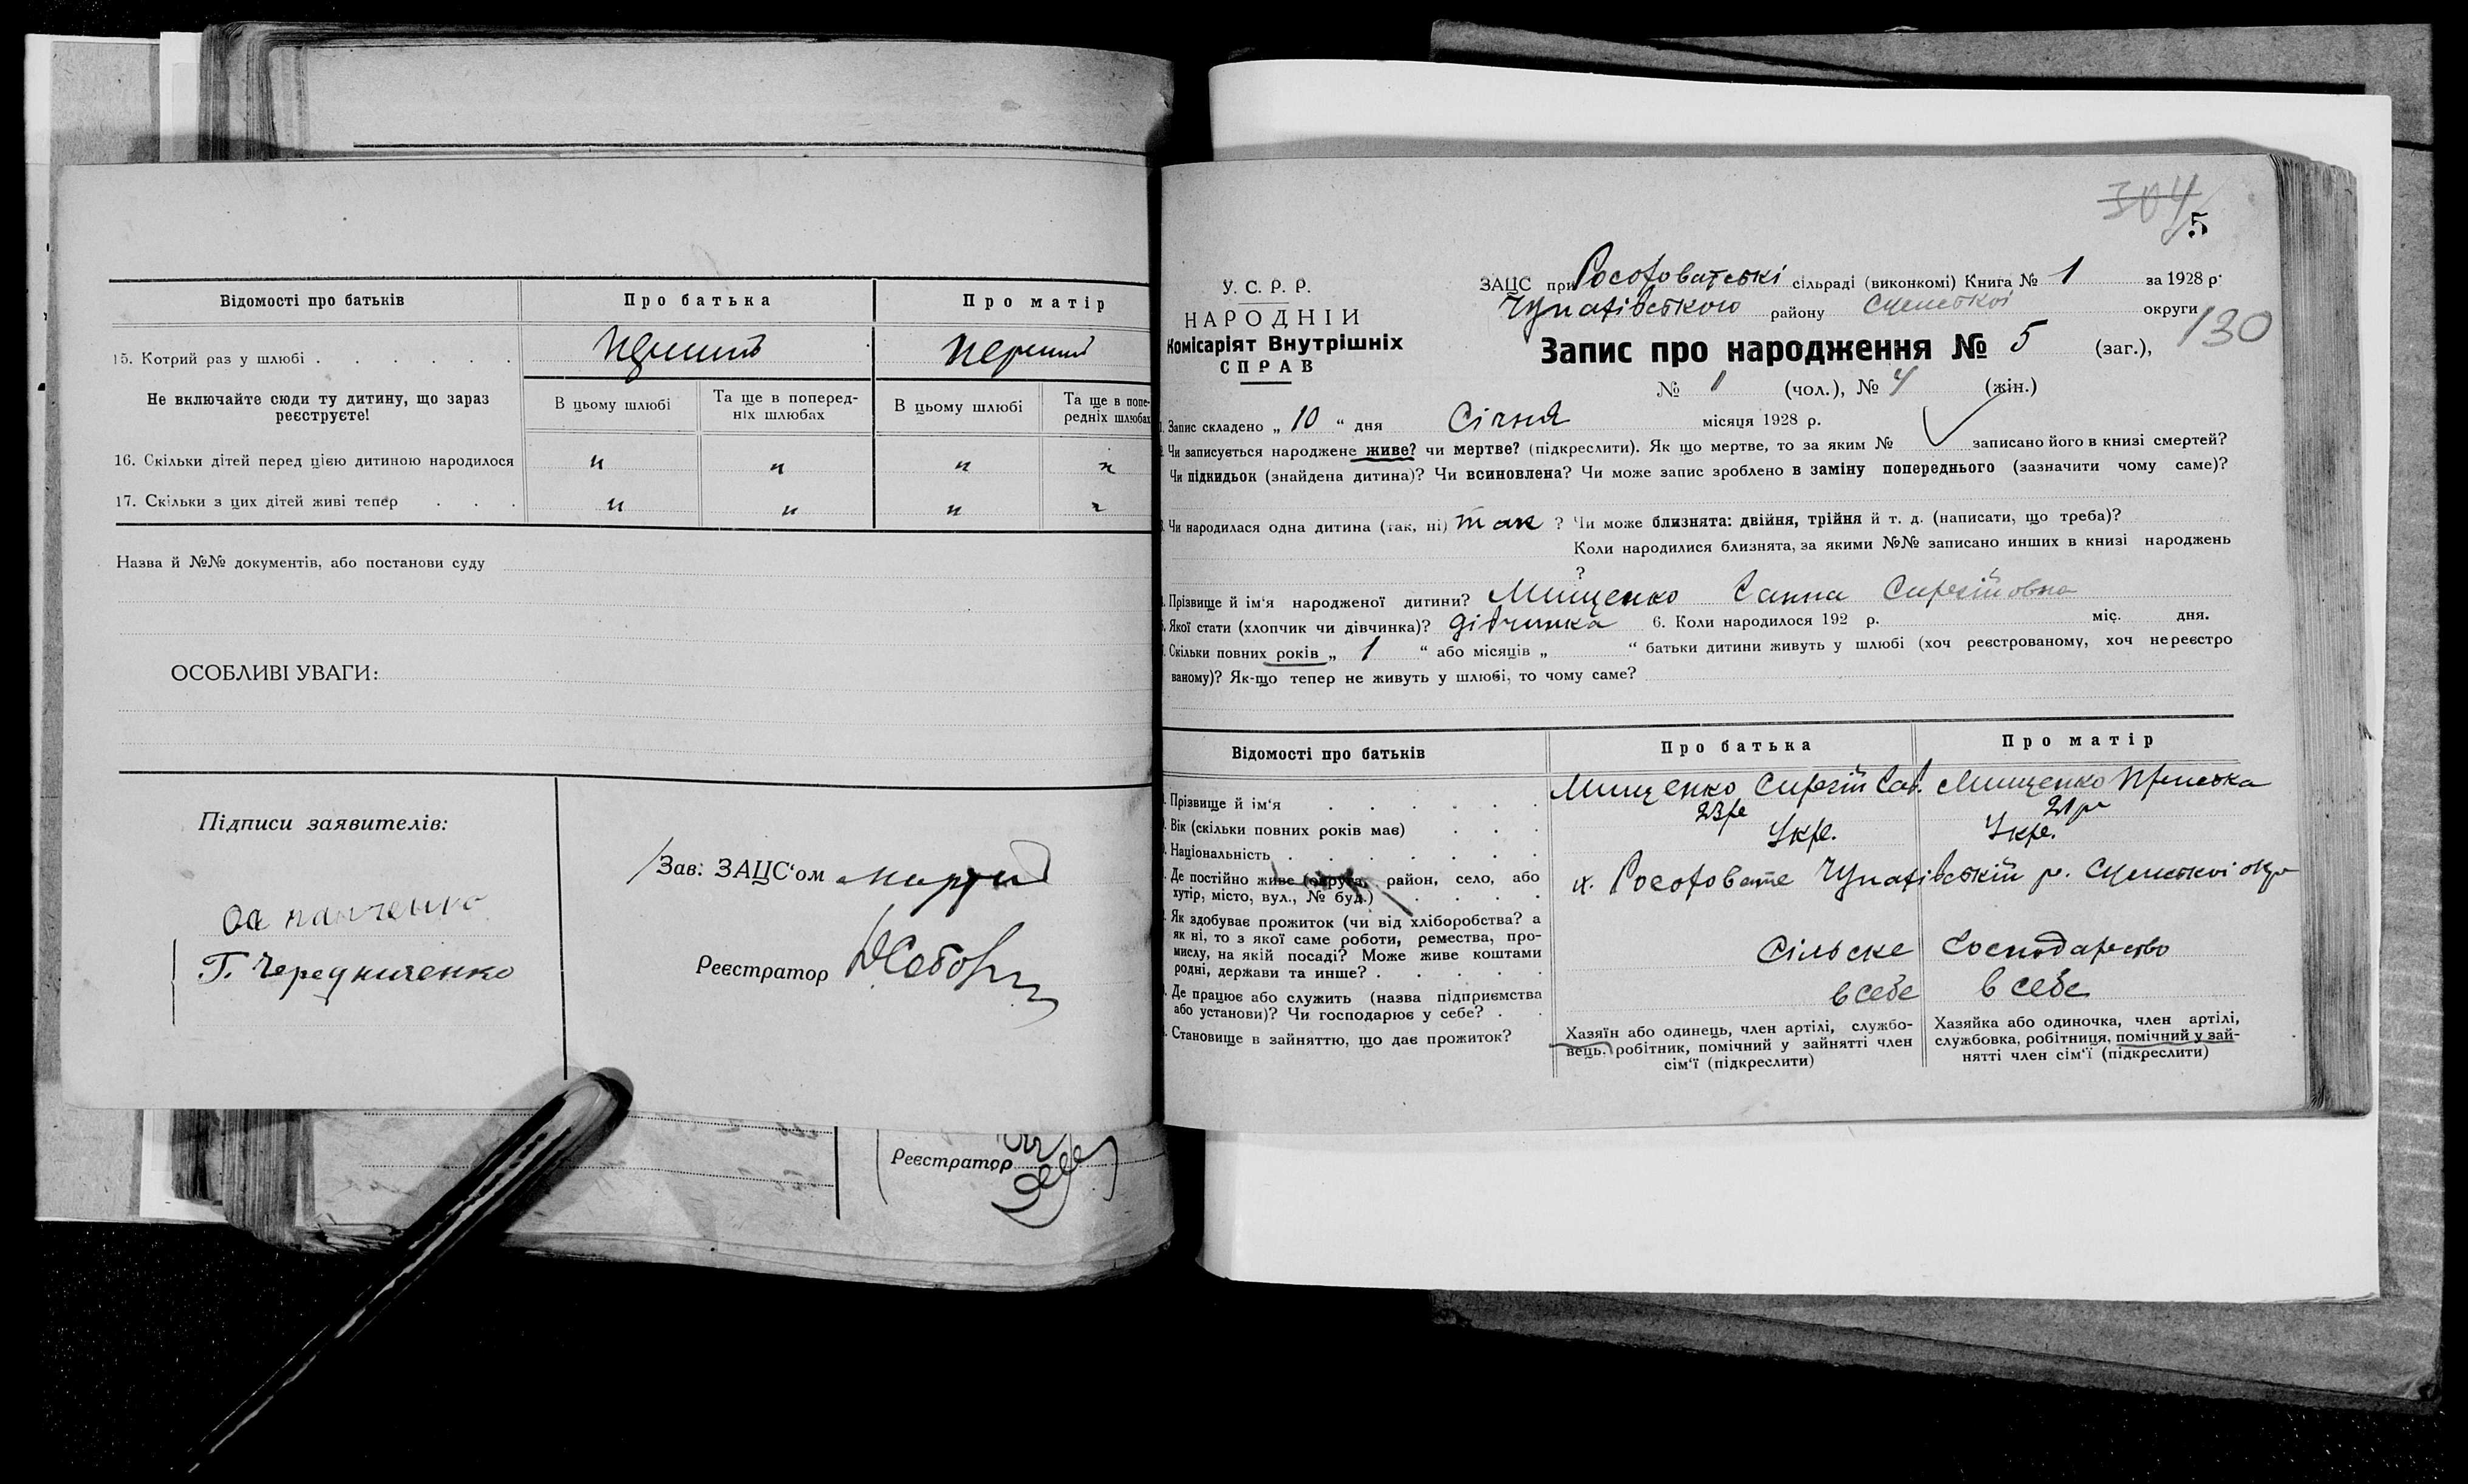 Відомості про батьків
Про батька
Про матір
15. Котрий раз у шлюбі
перший
перший
Не включайте сюди ту дитину, що зараз
реєструєте!
В цьому шлюбі
Та ще в поперед-
ніх шлюбах
В цьому шлюбі
Та ще в попе-
редніх шлюбах
16. Скільки дітей перед цією дитиною народилося
" " " "
17. Скільки з цих дітей живі тепер
" " " "
Назва й №№ документів, або постанови суду
ОСОБЛИВІ УВАГИ:
Підписи заявителів:
Панченко
Г. Чередниченко
Зав. ЗАЦС'ом
Реєстратор
Реєстратор
304
5
У. С. Р. Р.
НАРОДНІЙ
Комісаріят Внутрішніх
СПРАВ
ЗАЦС при Рософоватські сільраді (виконкомі) Книга № 1 за 1928 р.
Чупахівського району Сумської округи
130
Запис про народження № 5 (заг.),
№ 1 (чол.), № 4 (жін.)
Запис складено „ 10 “ дня Січня місяця 1928 р.
Чи записується народжене живе? чи мертве? (підкреслити). Як що мертве, то за яким № записано його в книзі смертей?
Чи підкидьок (знайдена дитина)? Чи всиновлена? Чи може запис зроблено в заміну попереднього (зазначити чому саме)?
Чи народилася одна дитина (так, ні) так ? Чи може близнята: двійня, трійня й т. д. (написати, що треба)?
Коли народилися близнята, за якими №№ записано инших в книзі народжень
?
Прізвище й ім'я народженої дитини? Мищенко Ганна Сиргіїовна
Якої стати (хлопчик чи дівчинка)? дівчинка 6. Коли народилося 192 р. міс. дня.
Скільки повних років „ 1 “ або місяців „ “ батьки дитини живуть у шлюбі (хоч реєстрованому, хоч нереєстро
ваному)? Як-що тепер не живуть у шлюбі, то чому саме?
Відомості про батьків
Про батька
Про матір
Прізвище й ім'я
Мищенко Сиргій Сав.
Мищенко Приська
Вік (скільки повних років має)
23 р
21 р
Національність
Укр.
Укр.
Де постійно живе (округа, район, село, або
хутір, місто, вул., № буд.)
х. Рософовате Чупахівській р. Сумської окр
Як здобуває прожиток (чи від хліборобства? а
як ні, то з якої саме роботи, ремества, про-
мислу, на якій посаді? Може живе коштами
родні, держави та инше?
Сільске Господарство
Де працює або служить (назва підприємства
або установи)? Чи господарює у себе?
в себе
в себе
Становище в зайняттю, що дає прожиток?
Хазяїн або одинець, член артілі, службо-
вець, робітник, помічний у зайнятті член
сім'ї (підкреслити)
Хазяйка або одиночка, член артілі,
службовка, робітниця, помічний у зай-
нятті член сім'ї (підкреслити)